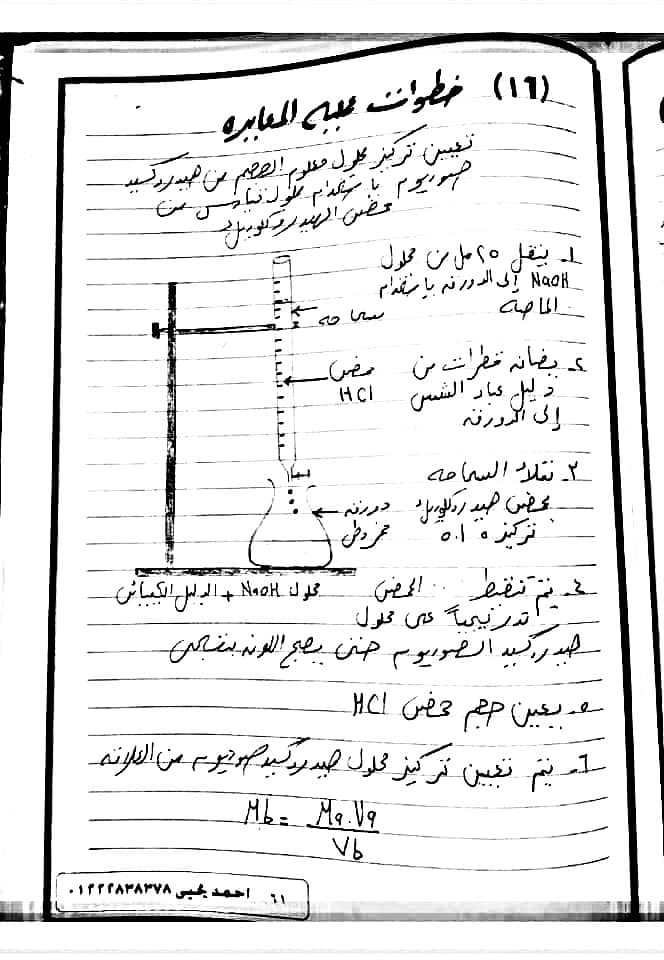 (١٦) خطوات عمليه المعايره
تعيين تركيز محلول معلوم الحجم من هيدروكسيد
صوديوم باستخدام محلول قياسى من
حمض الهيدروكلوريك
١- ينقل ٢٥ مل من محلول
NaOH إلى الدورق باستخدام
الماصه
سحاحه
٢- يضاف قطرات من
دليل عباد الشمس
إلى الدورق
حمض
HCl
٣- تملأ السحاحه
بحمض هيدروكلوريك
تركيز
دورق
مخروطى
محلول NaOH + الدليل الكيميائى
٤- يتم تنقيط الحمض
تدريجياً على محلول
هيدروكسيد الصوديوم حتى يصبح اللون بنفسجى
٥- يعين حجم حمض HCl
٦- يتم تعيين تركيز محلول هيدروكسيد صوديوم من العلاقه
Mb = Ma.Va
Vb
٦١ احمد يحيى ٠١٢٢٢٨٣٨٣٧٨